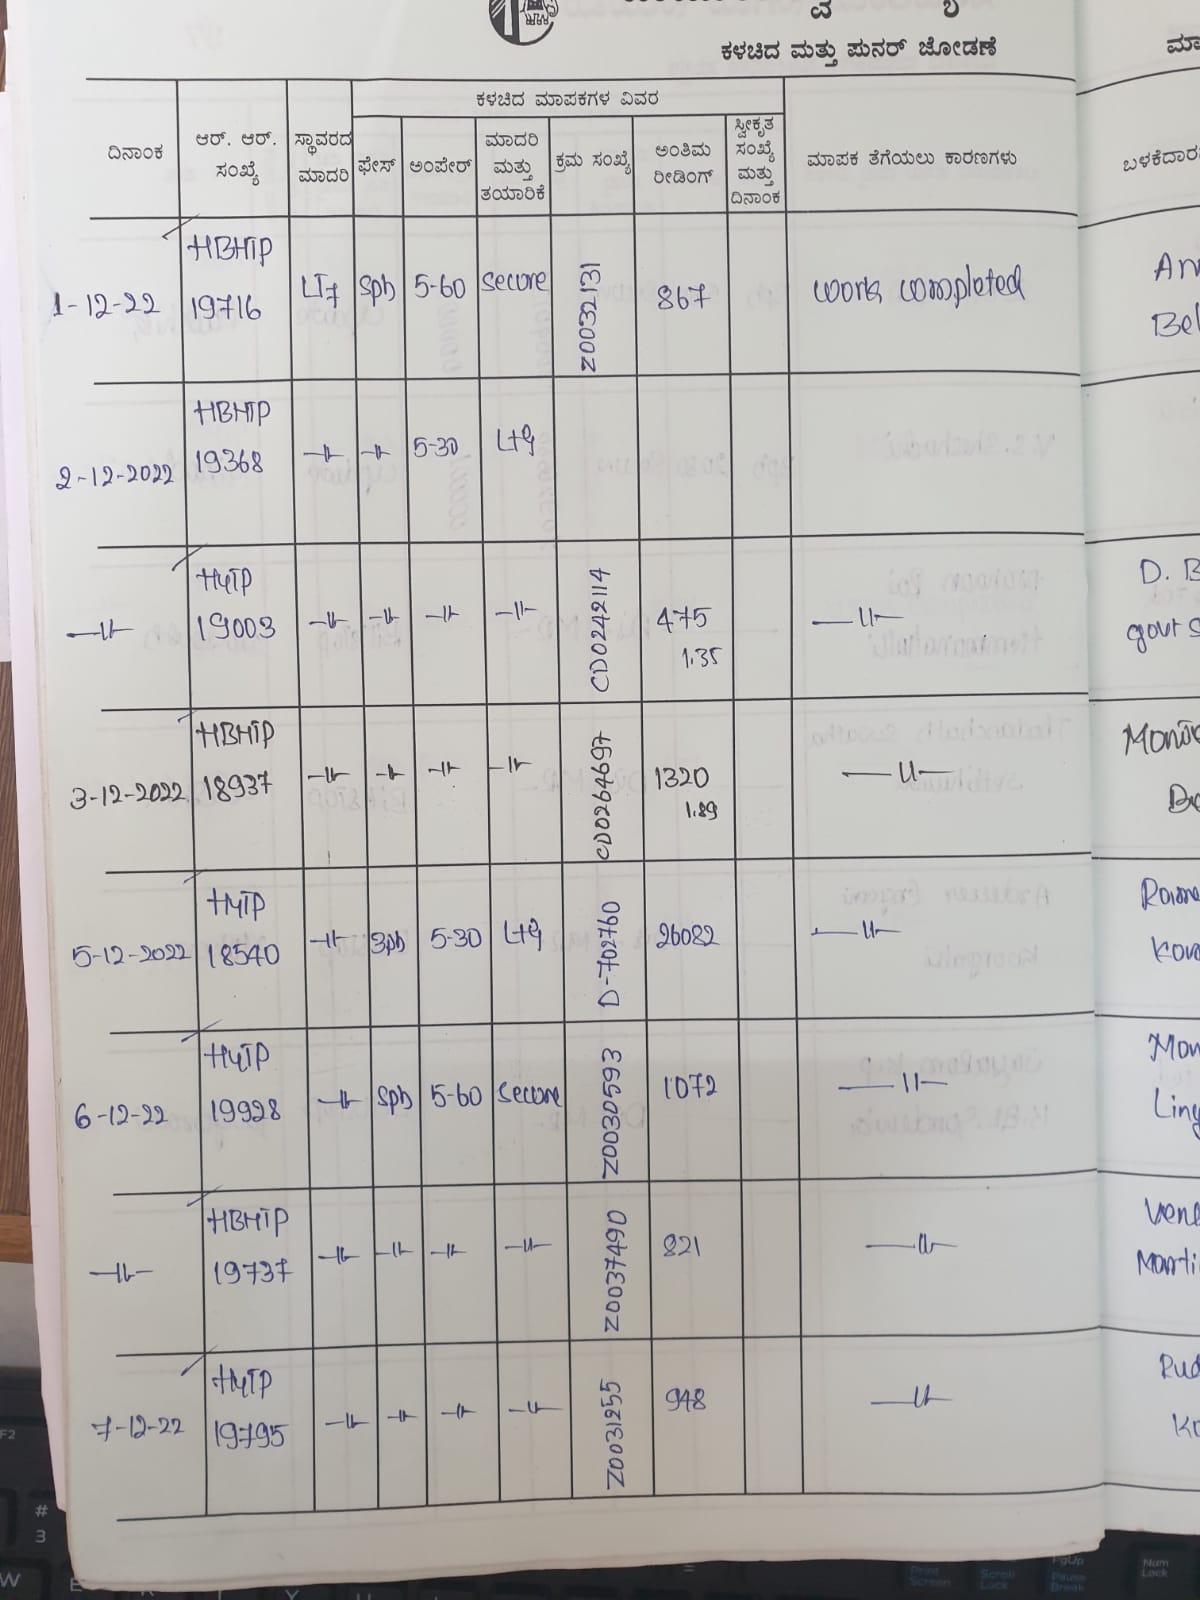 ಕಳಚಿದ ಮತ್ತು ಪುನರ್ ಜೋಡಣೆ
ದಿನಾಂಕ
ಆರ್. ಆರ್. ಸಂಖ್ಯೆ
ಸ್ಥಾವರದ ಮಾದರಿ
ಕಳಚಿದ ಮಾಪಕಗಳ ವಿವರ
ಫೇಸ್
ಅಂಪೇರ್
ಮಾದರಿ ಮತ್ತು ತಯಾರಿಕೆ
ಕ್ರಮ ಸಂಖ್ಯೆ
ಅಂತಿಮ ರೀಡಿಂಗ್
ಸ್ವೀಕೃತ ಸಂಖ್ಯೆ ಮತ್ತು ದಿನಾಂಕ
ಮಾಪಕ ತೆಗೆಯಲು ಕಾರಣಗಳು
ಬಳಕೆದಾರ
1-12-22 HBHTP 19716 LT7 Sph 5-60 Secure Z0032131 867 works completed
2-12-2022 HBHTP 19368 -11- -11- 5-30 L+G
-11- HYTP 19003 -11- -11- -11- -11- CD0242114 475 1.35 -11- D. B govt s
3-12-2022 HBHTP 18937 -11- -11- -11- -11- CD0264697 1320 1.89 -11-
5-12-2022 HYTP 18540 -11- 3ph 5-30 L+G D-702760 26082 -11-
6-12-22 HYTP 19928 -11- Sph 5-60 Secure Z0030593 1072 -11-
-11- HBHTP 19737 -11- -11- -11- -11- Z0037490 821 -11-
7-12-22 HYTP 19795 -11- -11- -11- -11- Z0031255 948 -11-